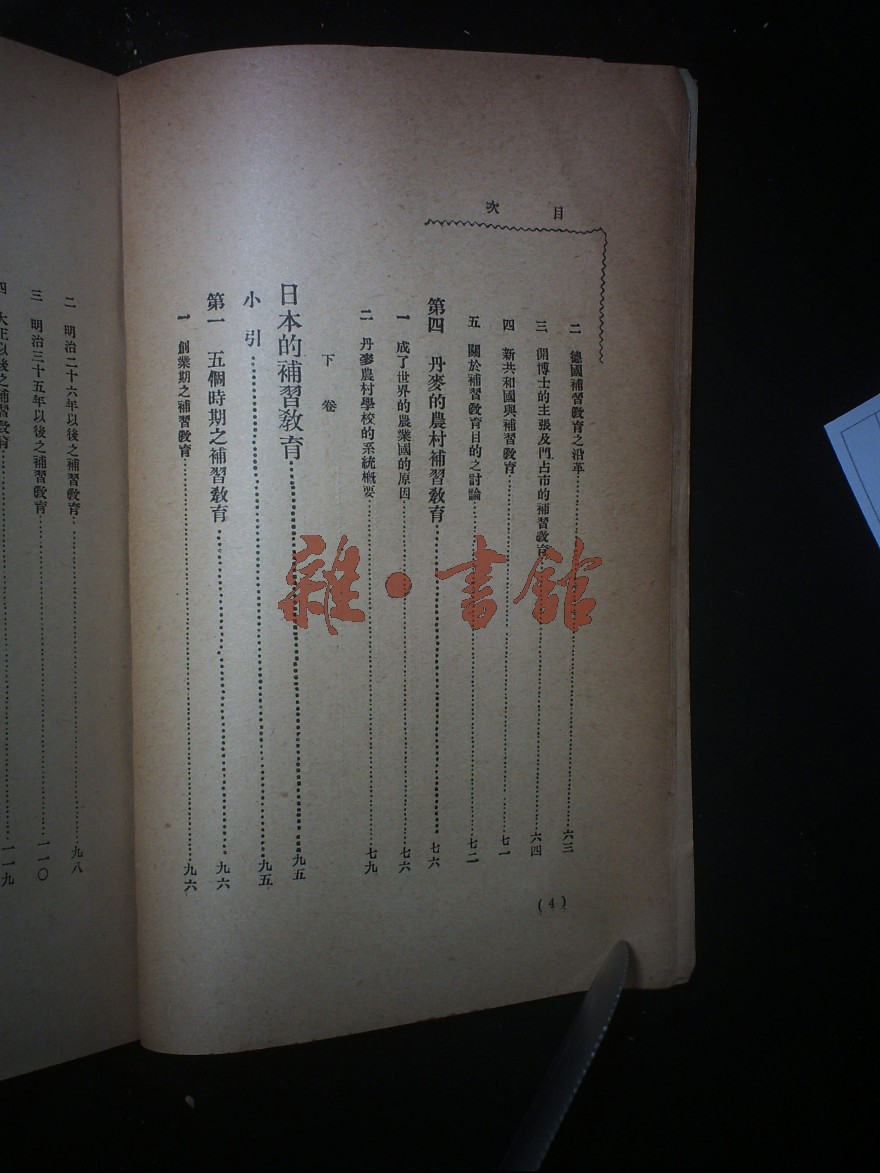 目次
二 德國補習教育之沿革……六三
三 開博士的主張及門占市的補習教育……六四
四 新共和國與補習教育……七一
五 關於補習教育目的之討論……七二
第四 丹麥的農村補習教育……七六
一 成了世界的農業國的原因……七六
二 丹麥農村學校的系統概要……七九
下卷
日本的補習教育……九五
小引……九五
第一 五個時期之補習教育……九六
一 創業期之補習教育……九六
(4)
二 明治二十六年以後之補習教育……九八
三 明治三十五年以後之補習教育……一一〇
四 大正以後之補習教育……一一九
雜·書館